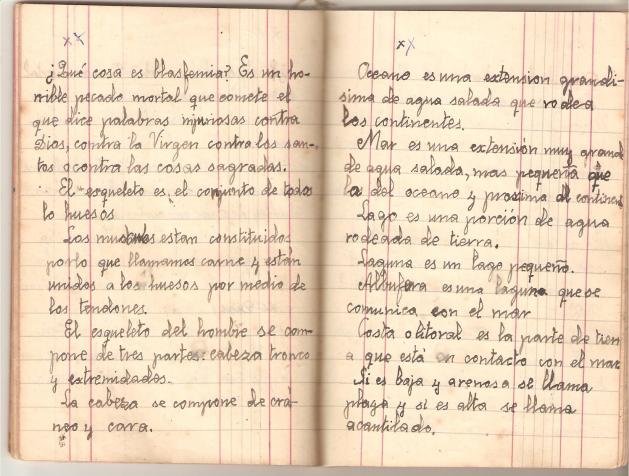 ¿Qué cosa es blasfemia? Es un ho-
rrible pecado mortal que comete el
que dice palabras injuriosas contra
Dios, contra la Virgen contra los san-
tos o contra las cosas sagradas.
El esqueleto es el conjunto de todos
lo huesos
Los musculos estan constituidos
porlo que llamamos carne y están
unidos a los huesos por medio de
los tendones.
El esqueleto del hombre se com-
pone de tres partes: cabeza tronco
y extremidades.
La cabeza se compone de crá-
neo y cara.
Oceano es una extension grandi-
sima de agua salada que rodea
los continentes.
Mar es una extensión muy grande
de agua salada, mas pequeña que
la del oceano y proxima al continen
Lago es una porción de agua
rodeada de tierra.
Laguna es un lago pequeño.
Albufera es una laguna que se
comunica con el mar
Costa o litoral es la parte de tierr
a que está en contacto con el mar
Si es baja y arenosa se llama
playa y si es alta se llama
acantilado.